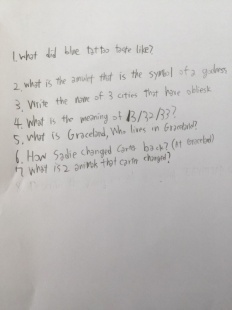 1. What did blue tatto taste like?
2. what is the amulet that is the symbol of a godness
3. Write the name of 3 cities that have oblisk
4. What is the meaning of 13/32/33?
5. What is Graceland, Who lives in Graceland?
6. How Sadie changed Carter back? (At
7. What is 2 animals that carter changed?